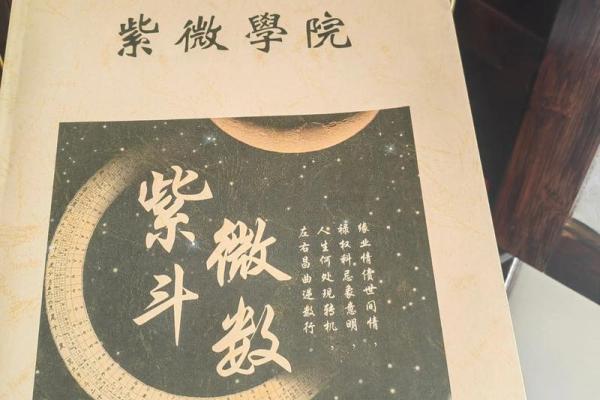 紫微學院
紫微斗数
缘业情债世间情，
禄权科忌象意明，
人生何处现转机，
左右昌曲逆数行